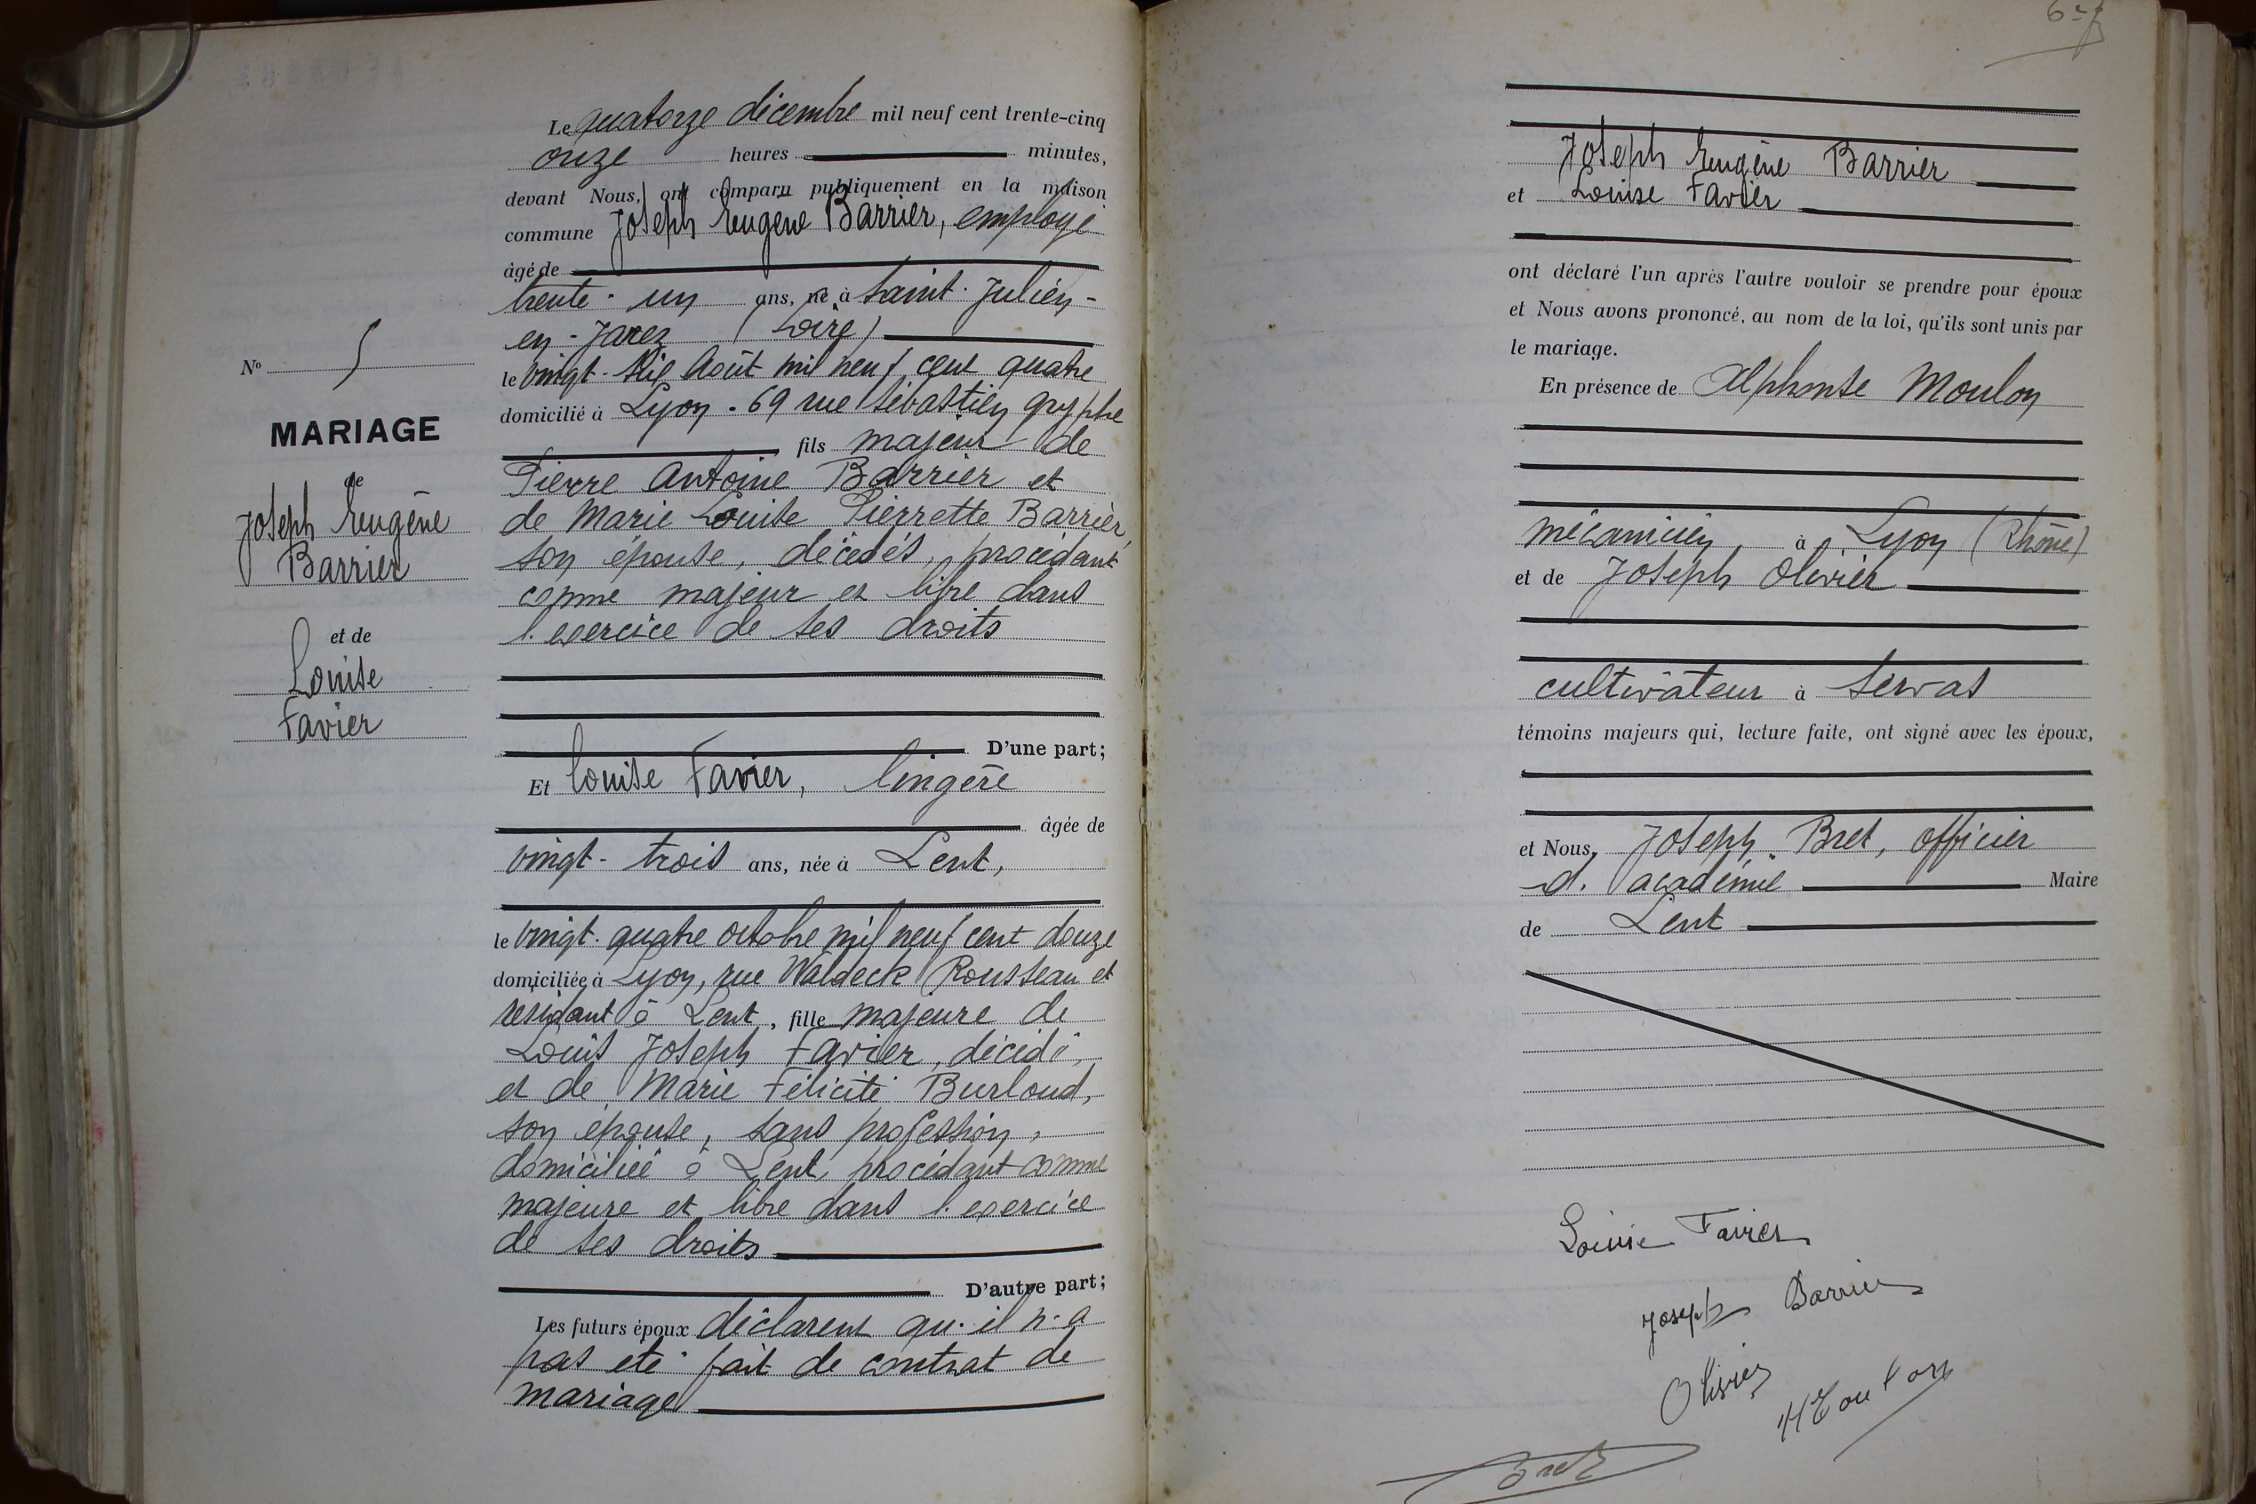 N° 5
MARIAGE
de
Joseph Eugène
Barrier
et de
Louise
Favier
Le quatorze décembre mil neuf cent trente-cinq
onze heures minutes,
devant Nous, ont comparu publiquement en la maison
commune Joseph Eugène Barrier, employé
âgé de
trente-un ans, né à Saint-Julien-
en-Jarez (Loire)
le vingt-six Août mil neuf cent quatre
domicilié à Lyon - 69 rue Sébastien gryphe
fils majeur de
Pierre Antoine Barrier et
de Marie Louise Pierrette Barrier,
son épouse, décédés, procédant
comme majeur et libre dans
l'exercice de ses droits
D'une part;
Et Louise Favier, lingère
âgée de
vingt-trois ans, née à Lent,
le vingt-quatre octobre mil neuf cent douze
domiciliée à Lyon, rue Waldeck Rousseau et
résidant à Lent, fille majeure de
Louis Joseph Favier, décédé,
et de Marie Félicité Burloud,
son épouse, sans profession,
domiciliée à Lent, procédant comme
majeure et libre dans l'exercice
de ses droits
D'autre part;
Les futurs époux déclarent qu'il n'a
pas été fait de contrat de
mariage
Joseph Eugène Barrier
et Louise Favier
ont déclaré l'un après l'autre vouloir se prendre pour époux
et Nous avons prononcé, au nom de la loi, qu'ils sont unis par
le mariage.
En présence de Alphonse Moulon
mécanicien à Lyon (Rhône)
et de Joseph Olivier
cultivateur à Servas
témoins majeurs qui, lecture faite, ont signé avec les époux,
et Nous, Joseph Bret, officier
d'académie Maire
de Lent
Louise Favier
Joseph Barrier
Olivier
Bret